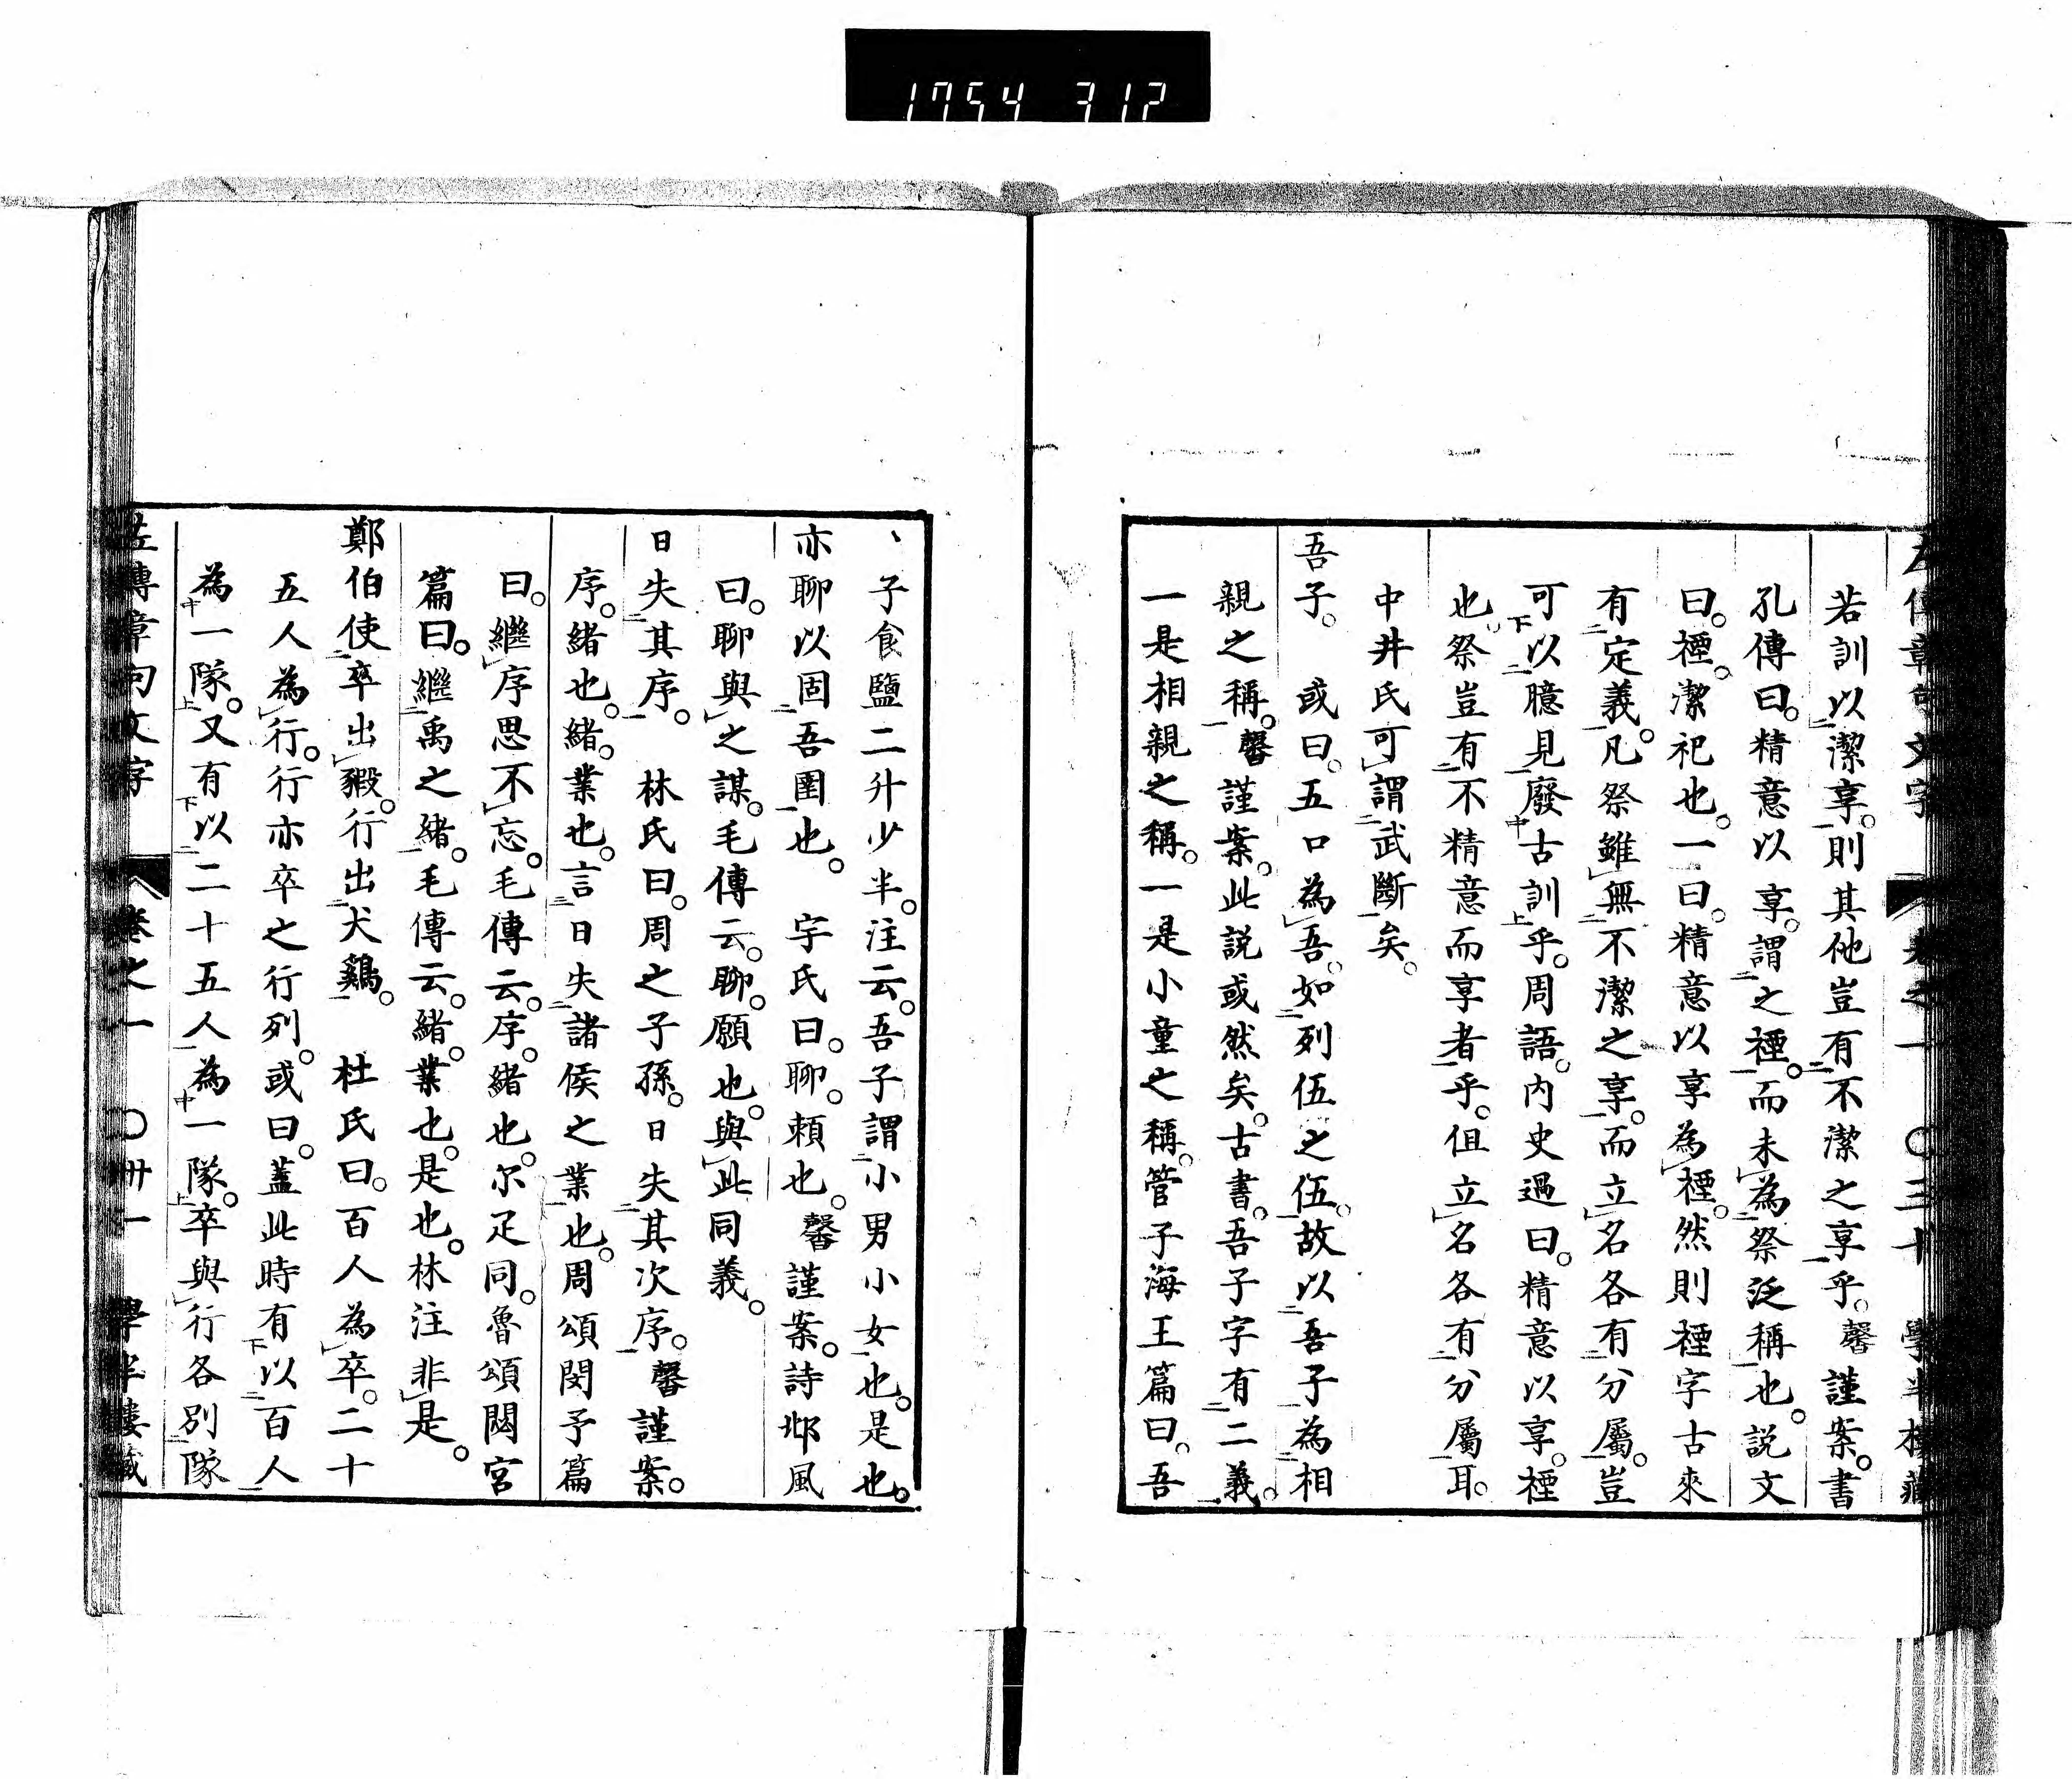 1754 317
左傳章句文字 卷之一 〇三十 學半樓藏
若訓以潔享。則其他豈有不潔之享乎。馨謹案。書
孔傳曰。精意以享。謂之禋。而未為祭泛稱也。説文
曰。禋。潔祀也。一曰。精意以享為禋。然則禋字古來
有定義。凡祭雖無不潔之享。而立名各有分屬。豈
可以臆見廢古訓乎。周語。内史過曰。精意以享。禋
也。祭豈有不精意而享者乎。但立名各有分屬耳。
中井氏可謂武斷矣。
吾子。 或曰。五口為吾。如列伍之伍。故以吾子為相
親之稱。馨謹案。此説或然矣。古書。吾子字有二義。
一是相親之稱。一是小童之稱。管子海王篇曰。吾
子食鹽二升少半。注云。吾子謂小男小女也。是也。
亦聊以固吾圉也。 字氏曰。聊。頼也。馨謹案。詩邶風
曰。聊與之謀。毛傳云。聊。願也。與此同義。
日失其序。 林氏曰。周之子孫。日失其次序。馨謹案。
序。緒也。緒。業也。言日失諸侯之業也。周頌閔予篇
曰。繼序思不忘。毛傳云。序。緒也。尓疋同。魯頌閟宮
篇曰。繼禹之緒。毛傳云。緒。業也。是也。林注非是。
鄭伯使卒出豭。行出犬鷄。 杜氏曰。百人為卒。二十
五人為行。行亦卒之行列。或曰。蓋此時有以百人
為一隊。又有以二十五人為一隊。卒與行各別隊
左傳章句文字 卷之一 〇卅一 學半樓藏